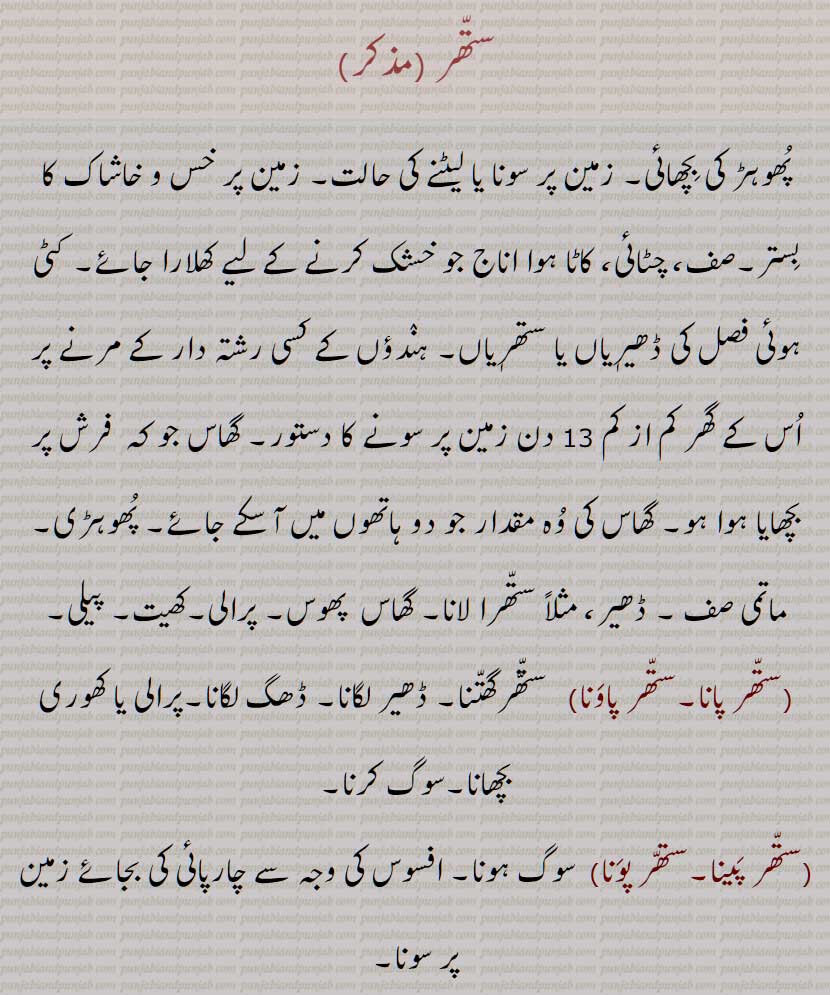 ستّھر (مذکر)
پُھوہڑ کی بِچھائی۔ زمین پر سونا یا لیٹنے کی حالت۔ زمین پر خس و خاشاک کا
بِستر ۔صف، چٹائی، کاٹا ہوا اناج جو خشک کرنے کے لیے کھلارا جائے۔ کٹی
ہوئی فصل کی ڈھیرِیاں یا ستھرِیاں۔ ہنْدوٴں کے کسی رشتہ دار کے مرنے پر
اُس کے گھر کم از کم 13 دن زمین پر سونے کا دستور۔ گھاس جو کہ فرش پر
بچھایا ہوا ہو۔ گھاس کی وُہ مقدار جو دو ہاتھوں میں آ سکے جائے۔ پُھوہڑی۔
ماتمی صف ۔ ڈھیر، مثلاً ستّھرا لانا۔ گھاس پھوس۔ پرالی۔کھیت۔ پیلی۔
(ستّھر پانا۔ستّھر پاوَنا) ستّھر گھتّنا۔ ڈھیر لگانا۔ ڈھگ لگانا۔پرالی یا کھوری
بچھانا۔سوگ کرنا۔
(ستّھر پَینا۔ستھّر پوَنا) سوگ ہونا۔ افسوس کی وجہ سے چارپائی کی بجائے زمین
پر سونا۔